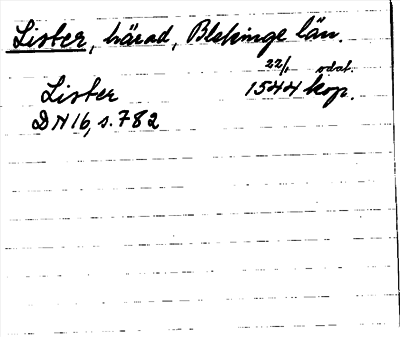 Lister, härad, Blekinge län.
22/1 odat.
Lister 1544 kop.
DN 16, s. 782